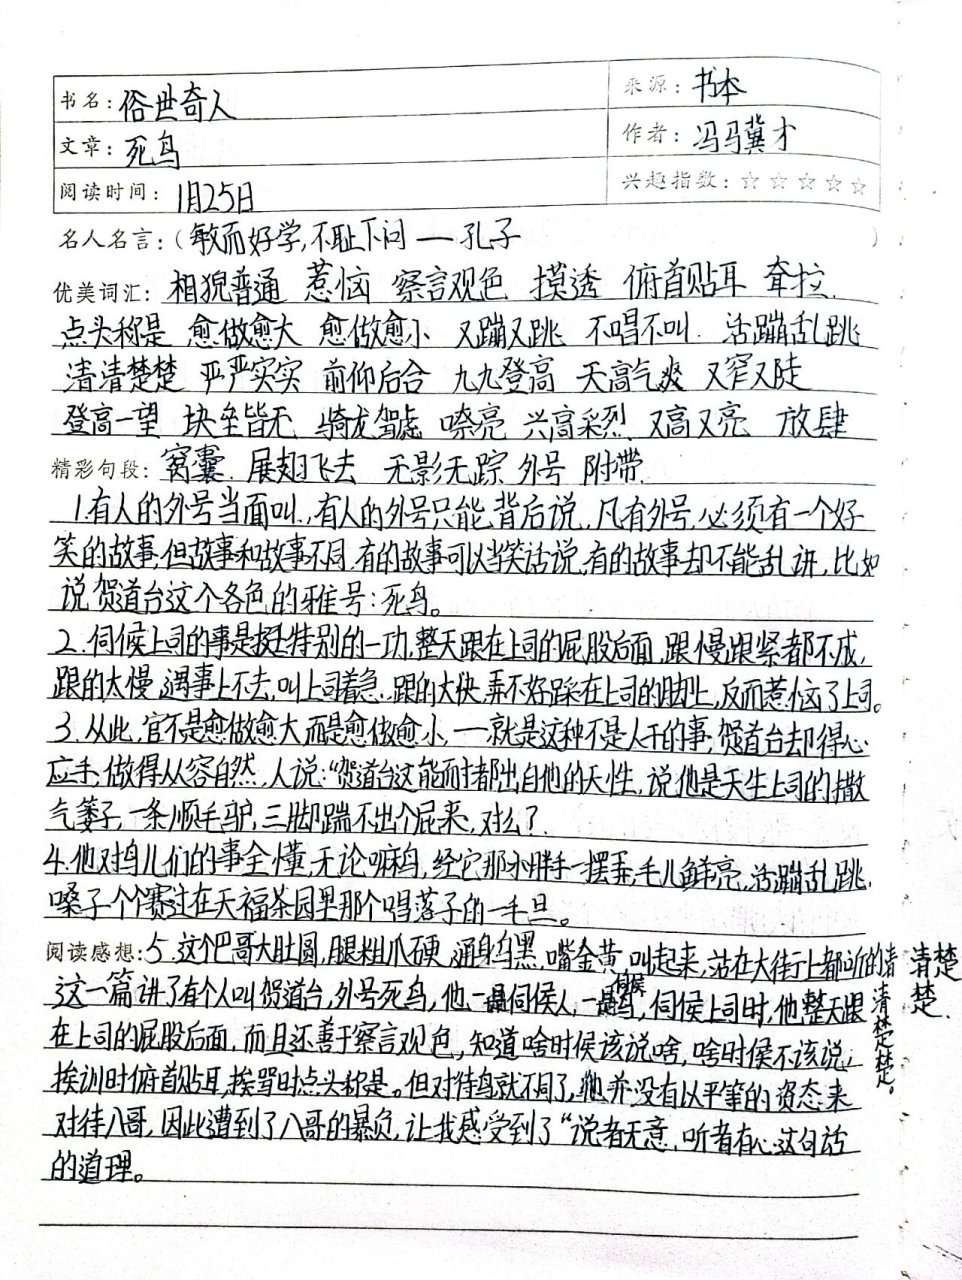 书名：俗世奇人
来源：书本
文章：死鸟
作者：冯马冀才
阅读时间：1月25日
兴趣指数：☆☆☆☆☆
名人名言：（敏而好学，不耻下问 — 孔子 ）
优美词汇：相貌普通 惹恼 察言观色 摸透 俯首贴耳 耷拉
点头称是 愈做愈大 愈做愈小 又蹦又跳 不唱不叫 活蹦乱跳
清清楚楚 严严实实 前仰后合 九九登高 天高气爽 又窄又陡
登高一望 块垒皆无 骑龙驾虚 嘹亮 兴高采烈 又高又亮 放肆
精彩句段：窝囊 展翅飞去 无影无踪 外号 附带
1.有人的外号当面叫，有人的外号只能背后说，凡有外号，必须有一个好
笑的故事，但故事和故事不同，有的故事可以当笑话说，有的故事却不能乱讲，比如
说贺道台这个各色的雅号：死鸟。
2.伺候上司的事是挺特别的一功，整天跟在上司的屁股后面，跟慢跟紧都不成，
跟的太慢，遇事上不去，叫上司着急，跟的太快，弄不好踩在上司的脚上，反而惹恼了上司。
3.从此，官不是愈做愈大，而是愈做愈小，一就是这种不是人干的事，贺道台却得心
应手，做得从容自然，人说：“贺道台这能耐都出自他的天性，说他是天生上司的撒
气篓子，一条顺毛驴，三脚踹不出个屁来，对么？
4.他对鸟儿们的事全懂，无论嘛鸟，经它那小胖手一摆弄，毛儿鲜亮，活蹦乱跳，
嗓子个个赛过在天福茶园里那个唱落子的一毛旦。
阅读感想：5.这个巴哥大肚圆，腿粗爪硬，通身乌黑，嘴金黄，叫起来，站在大街上都听的清
清楚楚。
清楚
楚.
这一篇讲了有个人叫贺道台，外号死鸟，他一是伺候人，一是伺候鸟，伺候上司时，他整天跟
在上司的屁股后面，而且还善于察言观色，知道啥时候该说啥，啥时候不该说，
挨训时俯首贴耳，挨骂时点头称是。但对待鸟就不同了，他并没有以平等的资态来
对待八哥，因此遭到了八哥的暴负，让我感受到了“说者无意，听者有心”这句话
的道理。